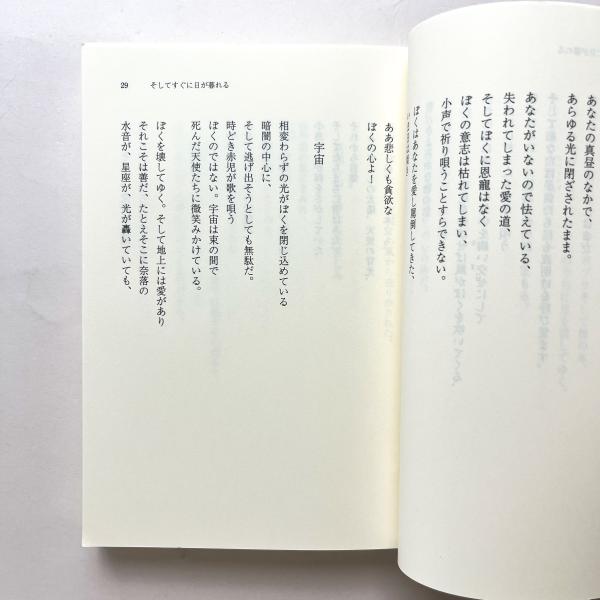 あなたの真昼のなかで、
あらゆる光に閉ざされたまま。
あなたがいないので怯えている、
失われてしまった愛の道、
そしてぼくに恩寵はなく
ぼくの意志は枯れてしまい、
小声で祈り唄うことすらできない。
ぼくはあなたを愛し罵倒してきた、
29 そしてすぐに日が暮れる
ああ悲しくも貪欲な
ぼくの心よ!
宇宙
相変わらずの光がぼくを閉じ込めている
暗闇の中心に、
そして逃げ出そうとしても無駄だ。
時どき赤児が歌を唄う
ぼくのではない。宇宙は束の間で
死んだ天使たちに微笑みかけている。
ぼくを壊してゆく。そして地上には愛があり
それこそは善だ、たとえそこに奈落の
水音が、星座が、光が轟いていても、